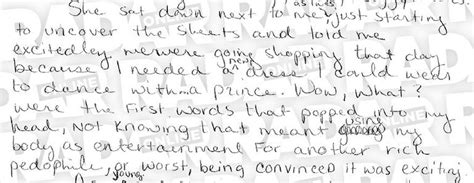 She sat down next to me, just starting
to uncover the sheets and told me
excitedley we were going shopping that day
because I needed a new dress I could wear
to dance with a Prince. Wow, What?
were the first words that popped into my
head, NOT KNOWING that meant using my
body as entertainment for another rich
pedophile, or worst, being convinced it was exciting
young
RAP ONLINE